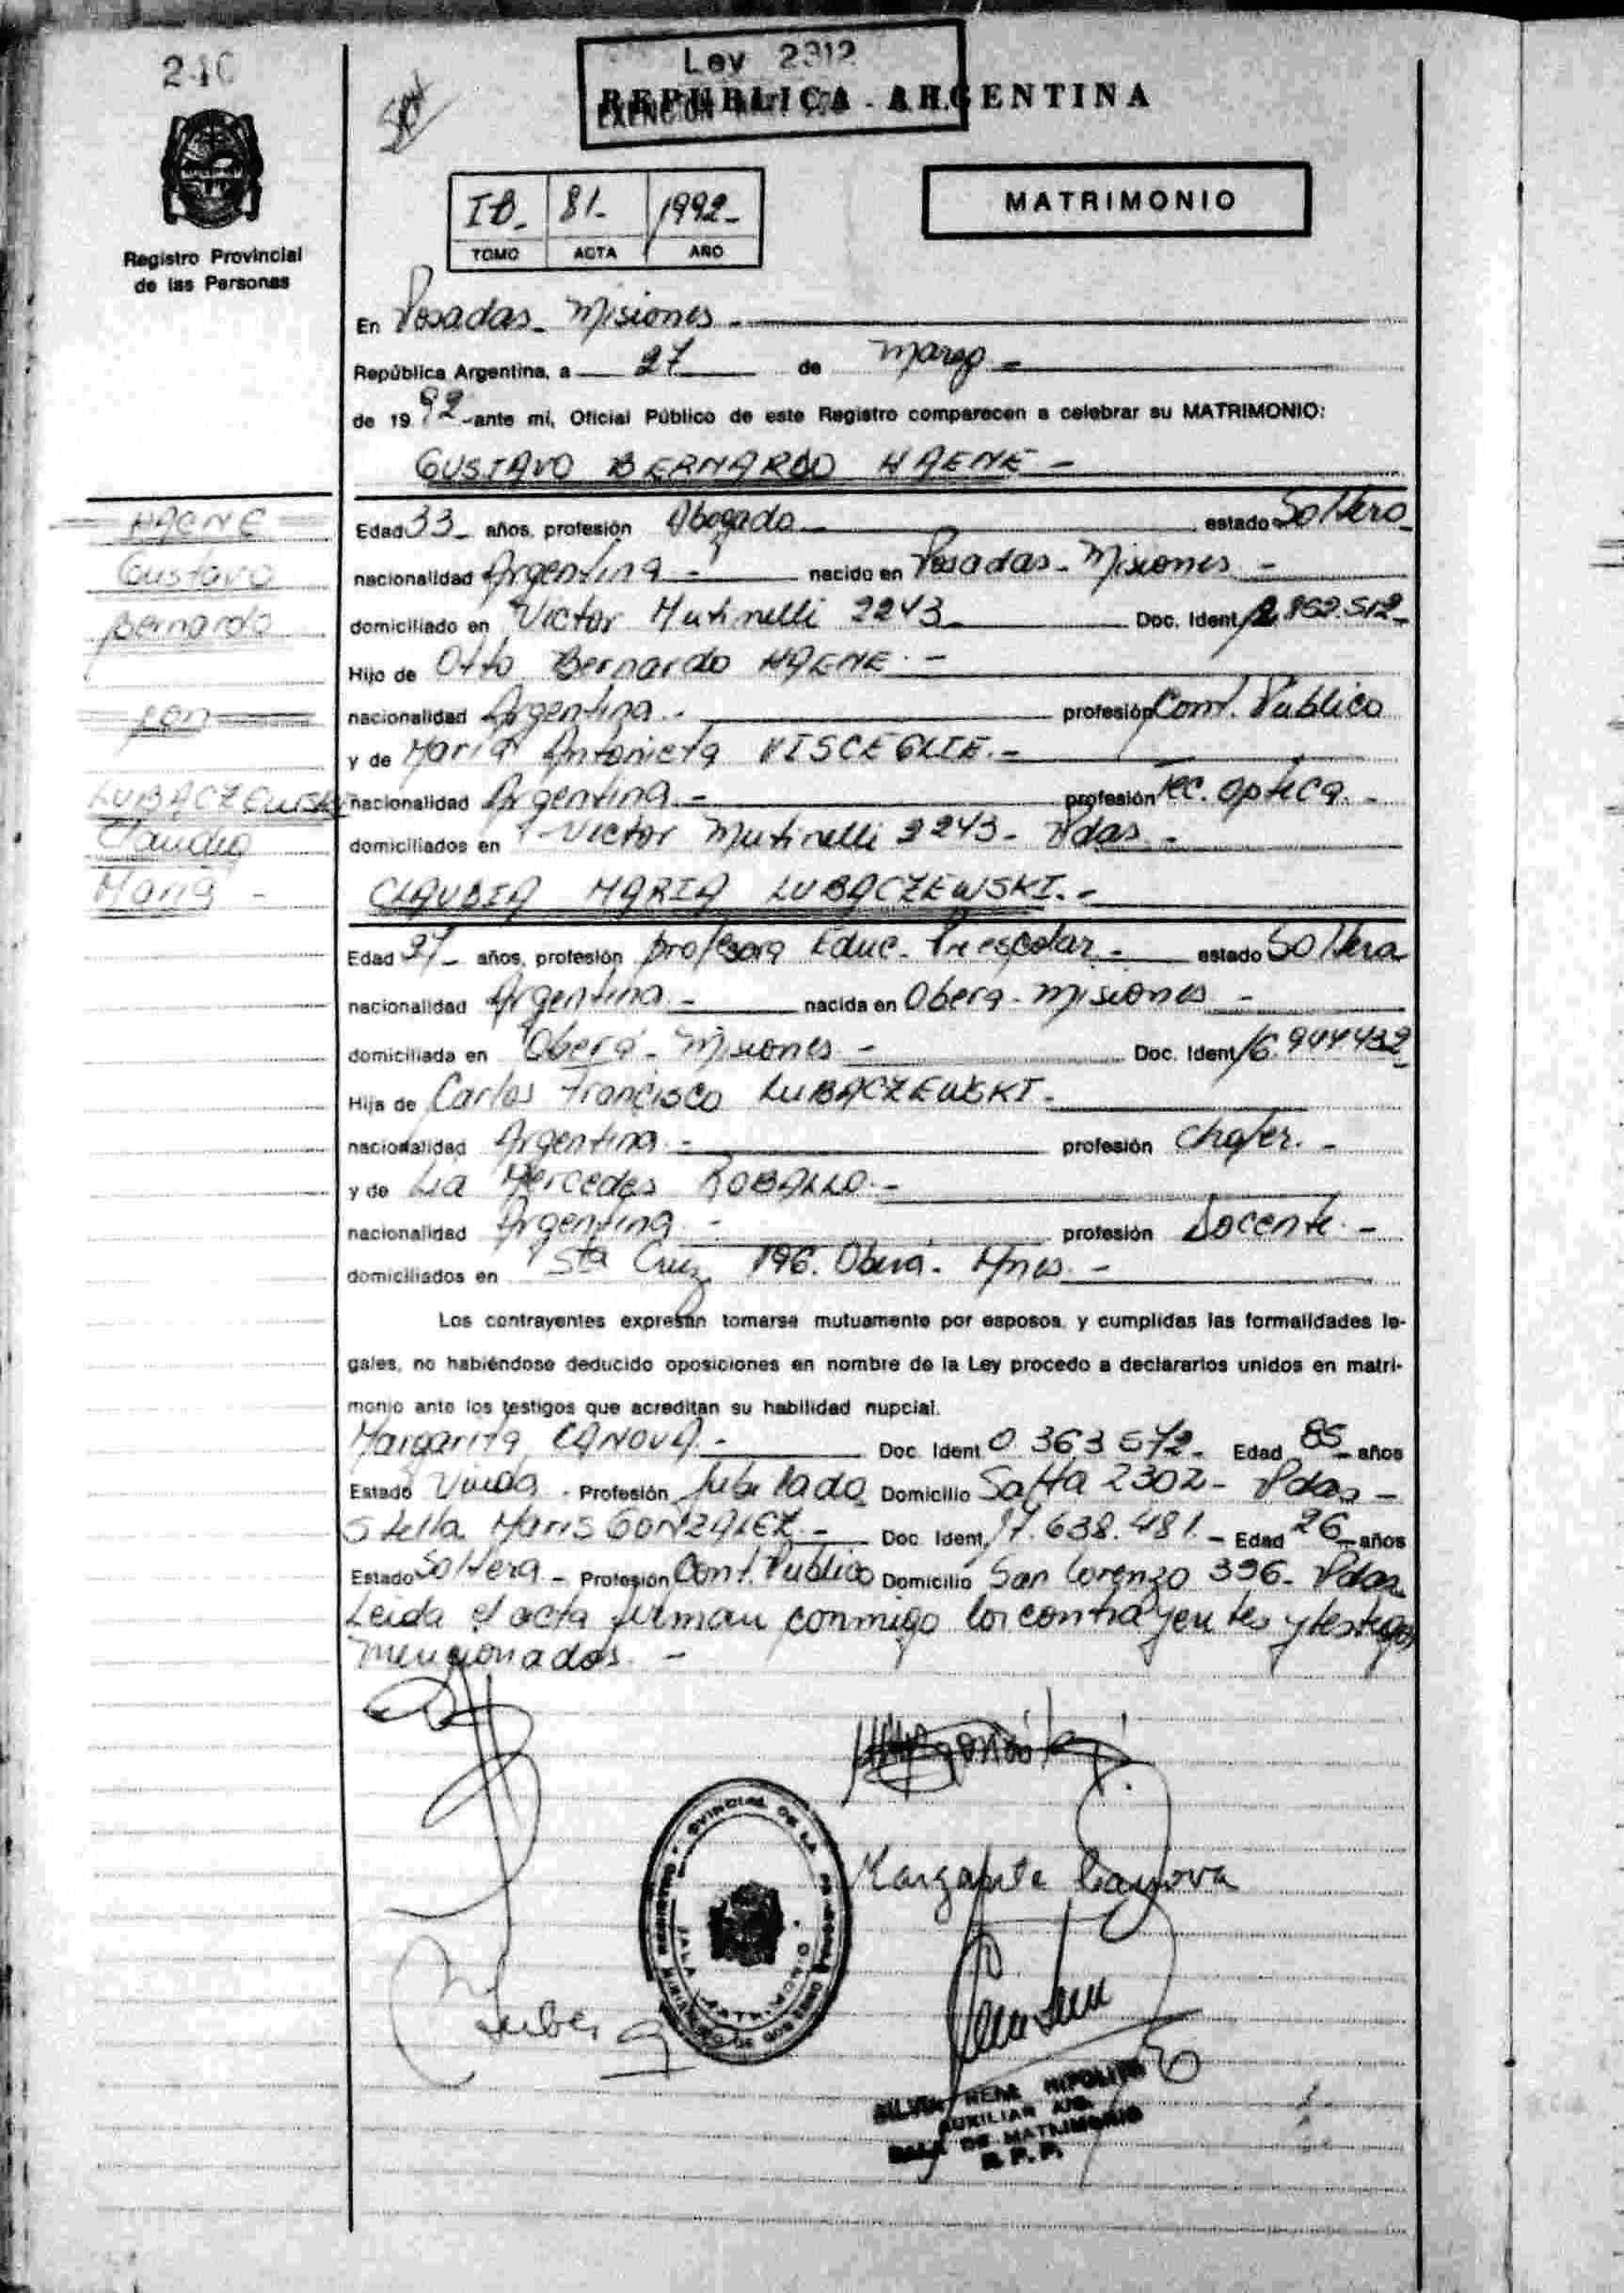 240
Ley 2312
REPUBLICA ARGENTINA
Registro Provincial
de las Personas
IB- 81- 1992-
TOMO ACTA AÑO
MATRIMONIO
En Posadas - Misiones -
República Argentina, a 27 de marzo -
de 1992 -ante mi, Oficial Público de este Registro comparecen a celebrar su MATRIMONIO:
GUSTAVO BERNARDO HAENE -
HAENE
Gustavo
Bernardo
con
LUBACZEWSKI
Claudia
Maria -
Edad 33- años, profesión Abogado estado Soltero-
nacionalidad Argentina - nacido en Posadas - Misiones -
domiciliado en Victor Mutinelli 2243 Doc. Ident 12.862.512-
Hijo de Otto Bernardo HAENE. -
nacionalidad Argentina - profesión Cont. Publico
y de Maria Antonieta VISCEGLIE. -
nacionalidad Argentina - profesión Tec. optica. -
domiciliados en Victor Mutinelli 2243 - Pdas -
CLAUDIA MARIA LUBACZEWSKI. -
Edad 27- años, profesión profesora Educ. Preescolar - estado Soltera
nacionalidad Argentina - nacida en Obera - Misiones -
domiciliada en Oberá - Misiones - Doc. Ident 16.944.432
Hija de Carlos Francisco LUBACZEWSKI -
nacionalidad Argentina - profesión Chofer. -
y de Lia Mercedes ROBALLO -
nacionalidad Argentina - profesión Docente. -
domiciliados en Sta Cruz 196. Oberá - Mnes. -
Los contrayentes expresan tomarse mutuamente por esposos, y cumplidas las formalidades le-
gales, no habiéndose deducido oposiciones en nombre de la Ley procedo a declararlos unidos en matri-
monio ante los testigos que acreditan su habilidad nupcial.
Margarita CANOVA. - Doc. Ident 0.363.672- Edad 85- años
Estado Viuda - Profesión Jubilada Domicilio Salta 2302 - Pdas -
Stella Maris GONZALEZ. - Doc. Ident. 17.638.481- Edad 26- años
Estado Soltera - Profesión Cont. Publico Domicilio San Lorenzo 396- Pdas
Leida el acta firman conmigo los contrayentes y testigos
mencionados. -
Margarita Canova
SILVIA RENE HIPOLITO
AUXILIAR
SALA DE MATRIMONIO
R. P. P.